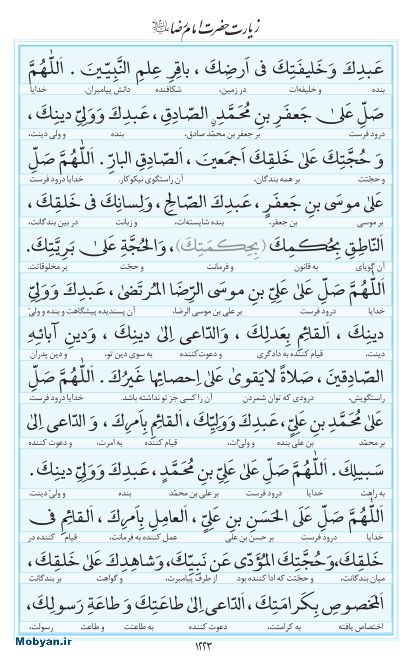 زیارت حضرت امام رضا علیه السلام
عَبدِكَ وَ خَليفَتِكَ فی اَرضِكَ ، باقِرِ عِلمِ النَّبِيّـينَ . اَللّٰهُمَّ
بنده و خلیفه‌ات در زمین، شکافنده دانش پیامبران. خدایا
صَلِّ عَلیٰ جَعفَرِ بنِ مُحَمَّدٍ الصّادِقِ ، عَبدِكَ وَ وَلِیِّ دينِكَ،
درود فرست بر جعفر بن محمّد صادق، بنده و ولی دینت،
وَ حُجَّتِكَ عَلیٰ خَلقِكَ اَجمَعينَ ، اَلصّادِقِ البارِّ . اَللّٰهُمَّ صَلِّ
و حجّتت بر همه بندگان، آن راستگوی نیکوکار. خدایا درود فرست
عَلیٰ موسَی بنِ جَعفَرٍ ، عَبدِكَ الصّالِحِ ، وَ لِسانِكَ فی خَلقِكَ ،
بر موسی بن جعفر، بنده شایسته‌ات، و زبانت در بین بندگانت،
اَلنّاطِقِ بِحُكمِكَ (بِحِكمَتِكَ) ، وَ الحُجَّةِ عَلیٰ بَرِيَّتِكَ.
آن گویای به قانون و فرمانت و حجّت بر مخلوقاتت.
اَللّٰهُمَّ صَلِّ عَلیٰ عَلِیِّ بنِ موسَی الرِّضَا المُرتَضیٰ ، عَبدِكَ وَ وَلِیِّ
خدایا درود فرست بر علی بن موسی الرضا، آن پسندیده پیشگاهت و بنده و ولیّ
دينِكَ ، اَلقائِمِ بِعَدلِكَ ، وَ الدّاعی اِلیٰ دينِكَ ، وَ دينِ آبائِهِ
دینت، قیام کننده به دادگری و دعوت کننده به سوی دین تو، و دین پدران
الصّادِقينَ ، صَلاةً لا يَقویٰ عَلیٰ اِحصائِها غَيرُكَ . اَللّٰهُمَّ صَلِّ
راستگویش، درودی که توان شمردن آن را کسی جز تو نداشته باشد. خدایا درود فرست
عَلیٰ مُحَمَّدِ بنِ عَلِیٍّ ، عَبدِكَ وَ وَلِيِّكَ ، اَلقائِمِ بِاَمرِكَ ، وَ الدّاعی اِلیٰ
بر محمّد بن علی بنده و ولی‌ّات، قیام کننده به امرت، و دعوت کننده
سَبيلِكَ . اَللّٰهُمَّ صَلِّ عَلیٰ عَلِیِّ بنِ مُحَمَّدٍ ، عَبدِكَ وَ وَلِیِّ دينِكَ.
به راهت خدایا درود فرست بر علی بن محمّد بنده و ولیّ دینت.
اَللّٰهُمَّ صَلِّ عَلَی الحَسَنِ بنِ عَلِیٍّ ، اَلعامِلِ بِاَمرِكَ ، اَلقائِمِ فی
خدایا درود فرست بر حسن بن علی عمل کننده به فرمانت، قیام کننده در
خَلقِكَ، وَ حُجَّتِكَ المُؤَدّی عَن نَبِيِّكَ، وَ شاهِدِكَ عَلیٰ خَلقِكَ،
میان بندگانت، و حجّتت که ادا کننده بود از طرف پیامبرت، و گواهت بر بندگانت
اَلمَخصوصِ بِكَرامَتِكَ ، اَلدّاعی اِلیٰ طاعَتِكَ وَ طاعَةِ رَسولِكَ،
اختصاص یافته به کرامتت، دعوت کننده به طاعتت و طاعت رسولت،
۱۲۲۳
Mobyan.ir